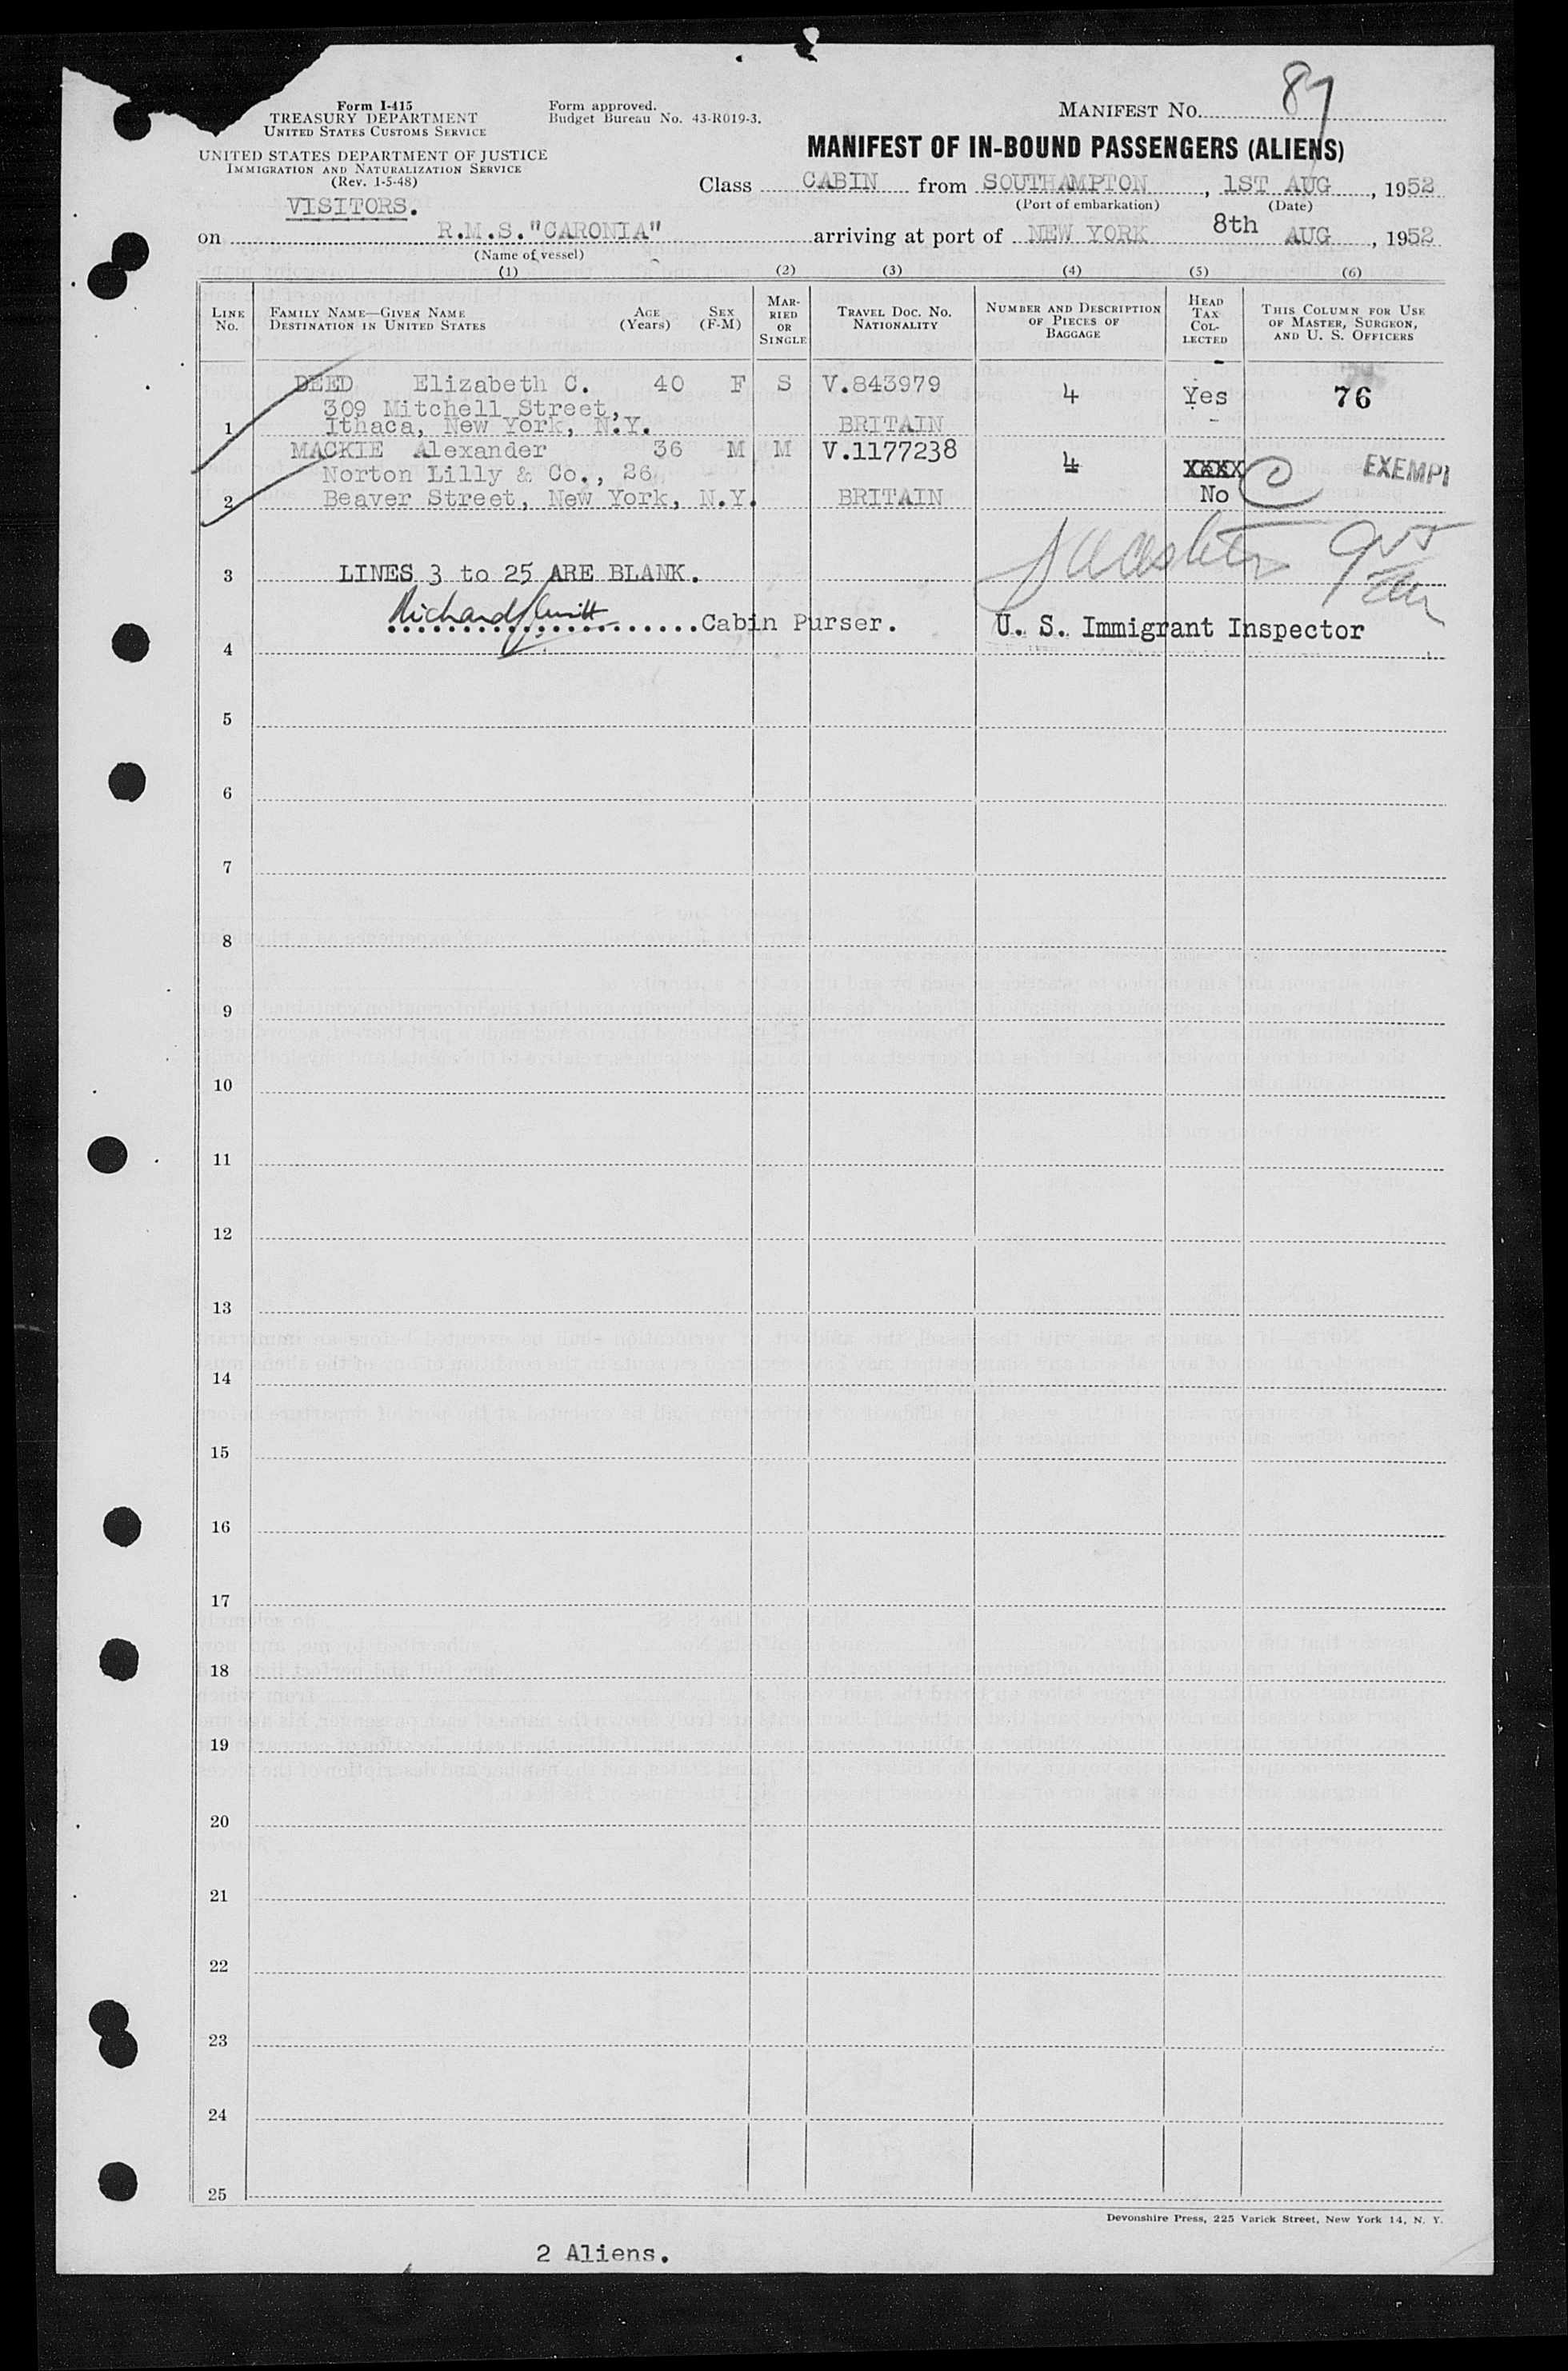 Form I-415
TREASURY DEPARTMENT
UNITED STATES CUSTOMS SERVICE
UNITED STATES DEPARTMENT OF JUSTICE
IMMIGRATION AND NATURALIZATION SERVICE
(Rev. 1-5-48)
VISITORS.
Form approved.
Budget Bureau No. 43-R019-3.
MANIFEST No. 87
MANIFEST OF IN-BOUND PASSENGERS (ALIENS)
Class CABIN from SOUTHAMPTON, 1ST AUG, 1952
(Port of embarkation) (Date)
on R.M.S."CARONIA" arriving at port of NEW YORK 8th AUG, 1952
(Name of vessel)
(1) (2) (3) (4) (5) (6)
LINE No.
FAMILY NAME—GIVEN NAME
DESTINATION IN UNITED STATES
AGE (Years)
SEX (F-M)
MARRIED OR SINGLE
TRAVEL DOC. NO.
NATIONALITY
NUMBER AND DESCRIPTION OF PIECES OF BAGGAGE
HEAD TAX COLLECTED
THIS COLUMN FOR USE OF MASTER, SURGEON, AND U. S. OFFICERS
DEED Elizabeth C. 40 F S V.843979 4 Yes 76
309 Mitchell Street,
1 Ithaca, New York, N.Y. BRITAIN
MACKIE Alexander 36 M M V.1177238 4 XXXX C EXEMPT
Norton Lilly & Co., 26
2 Beaver Street, New York, N.Y. BRITAIN No
3 LINES 3 to 25 ARE BLANK.
Richard ......Cabin Purser. U. S. Immigrant Inspector
4
5
6
7
8
9
10
11
12
13
14
15
16
17
18
19
20
21
22
23
24
25
Devonshire Press, 225 Varick Street, New York 14, N. Y.
2 Aliens.